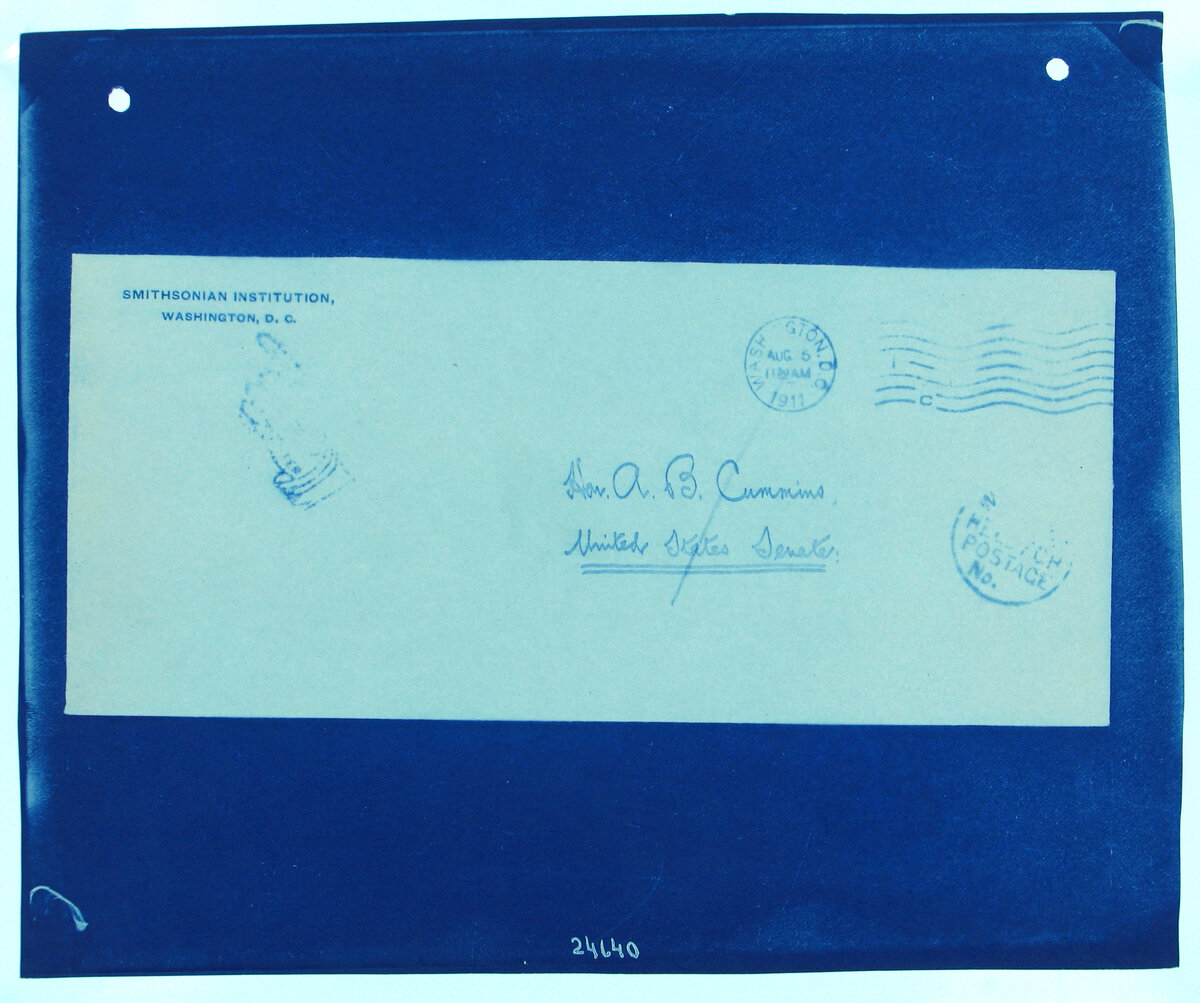 SMITHSONIAN INSTITUTION,
WASHINGTON, D. C.
WASH GTON, D.C.
AUG 5
11 30 AM
1911
C
Hon. A. B. Cummins,
United States Senate.
POSTAGE
No.
24640